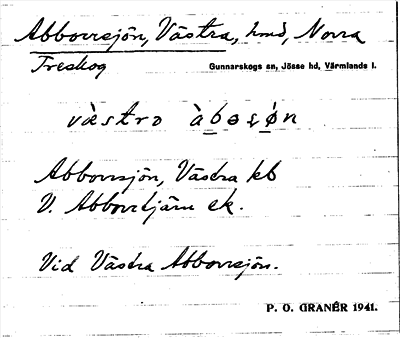 Abborrsjön, Västra, hmd, Norra
Treskog
Gunnarskogs sn, Jösse hd, Värmlands l.
væ̀stra àbosø̀n
Abborrsjön, Västra kb
V. Abborrtjärn ek.
Vid Västra Abborrsjön.
P. O. GRANÉR 1941.